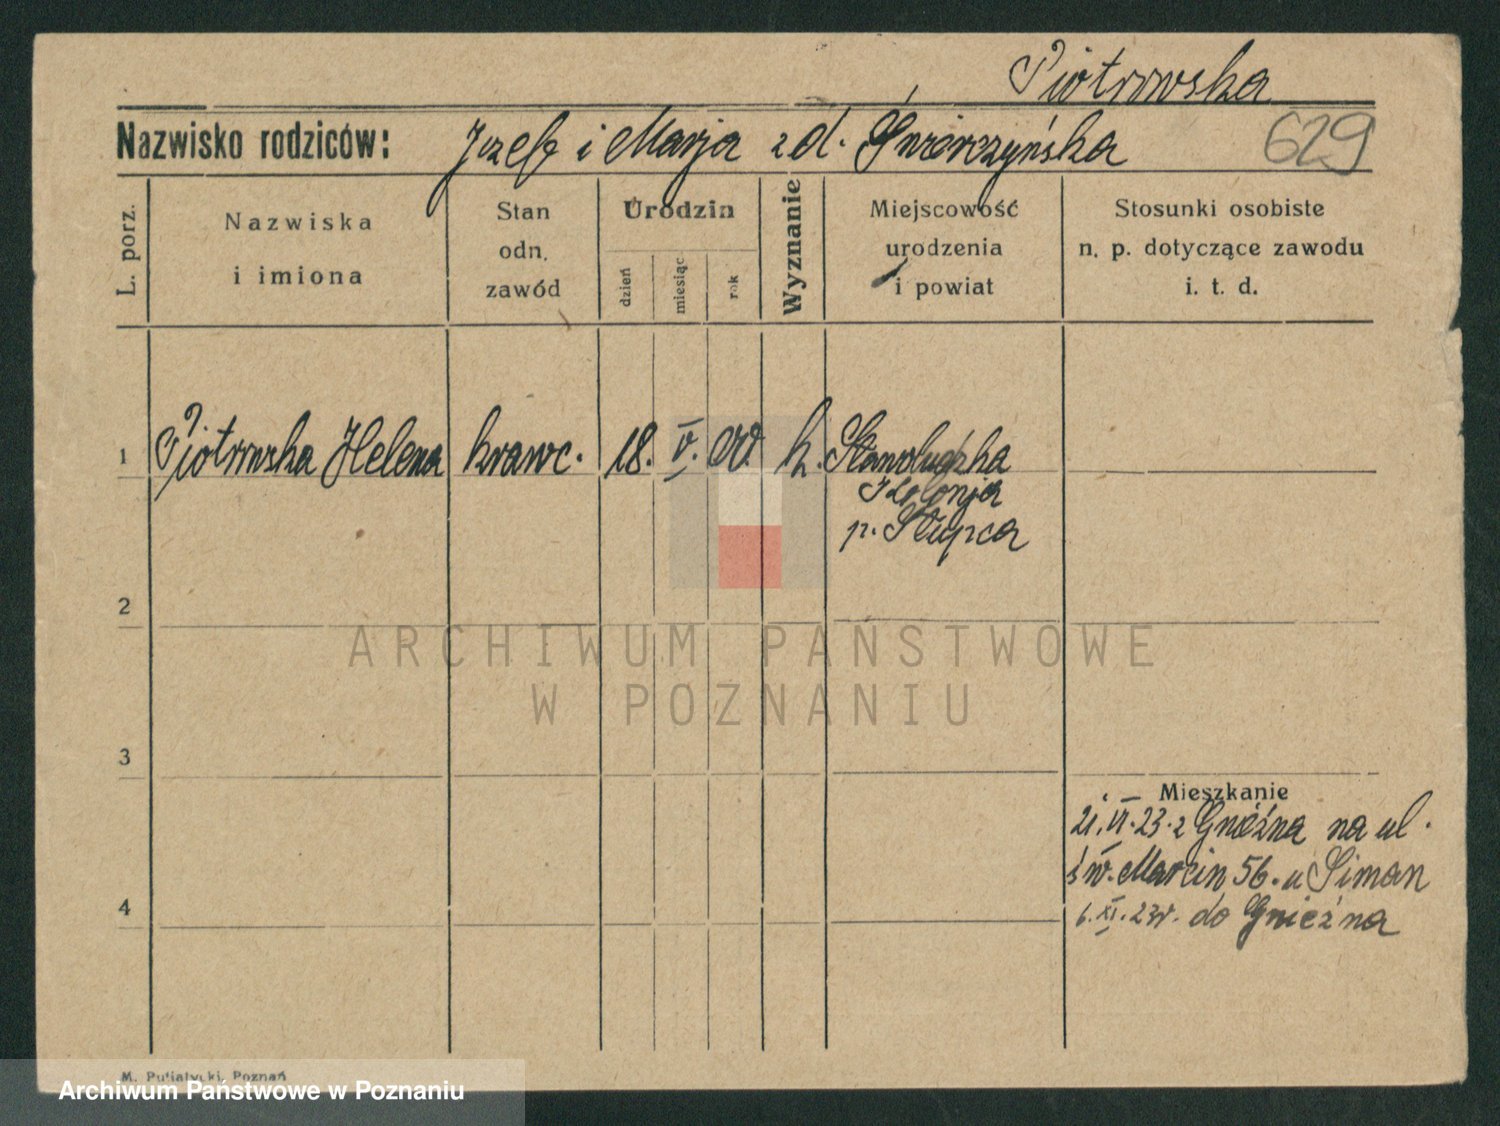 Piotrowska
Nazwisko rodziców: Józef i Marja z d. Świerczyńska 629
L. porz.
Nazwiska
i imiona
Stan
odn.
zawód
Urodzin
dzień
miesiąc
rok
Wyznanie
Miejscowość
urodzenia
i powiat
Stosunki osobiste
n. p. dotyczące zawodu
i. t. d.
1 Piotrowska Helena krawc. 18. V. 00. k.
Kolonja
p. Słupca
2
ARCHIWUM PAŃSTWOWE
W POZNANIU
3
Mieszkanie
21. VI. 23. z Gniezna na ul.
św. Marcin 56. u Siman
4
6. XI. 23r. do Gniezna
M. Putiatycki, Poznań
Archiwum Państwowe w Poznaniu